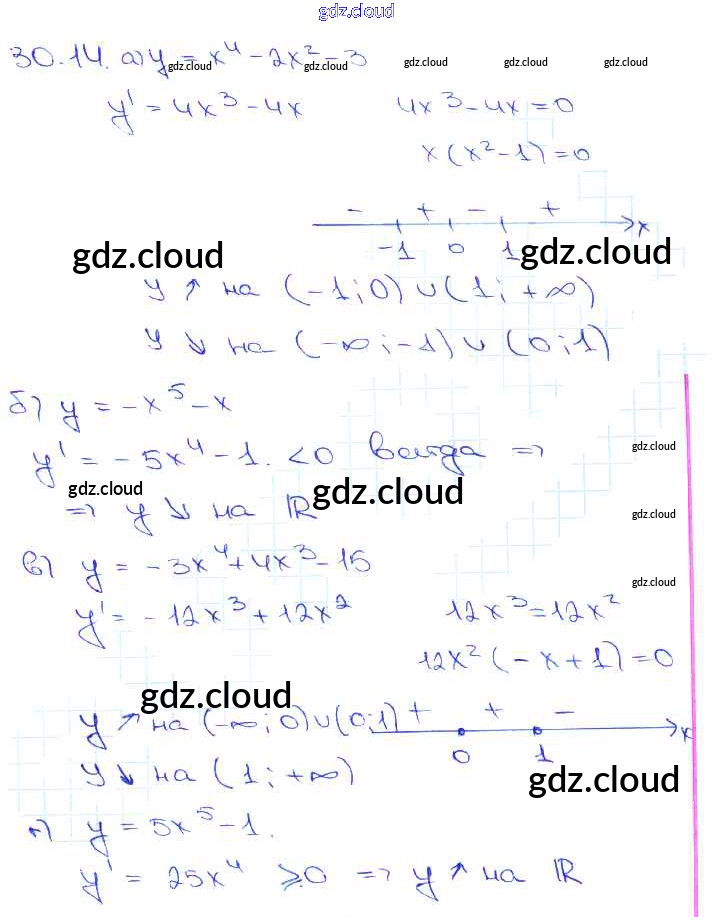 gdz.cloud
30.14. а) y = x⁴ - 2x² - 3
gdz.cloud gdz.cloud gdz.cloud gdz.cloud gdz.cloud
y' = 4x³ - 4x 4x³ - 4x = 0
x(x² - 1) = 0
- + - + x
-1 0 1
gdz.cloud gdz.cloud
y ↗ на (-1; 0) ∪ (1; +∞)
y ↘ на (-∞; -1) ∪ (0; 1)
б) y = -x⁵ - x
y' = -5x⁴ - 1. < 0 всегда ⇒
gdz.cloud
gdz.cloud gdz.cloud
⇒ y ↘ на ℝ
gdz.cloud
в) y = -3x⁴ + 4x³ - 15
gdz.cloud
y' = -12x³ + 12x² 12x³ = 12x²
12x²(-x + 1) = 0
gdz.cloud
y ↗ на (-∞; 0) ∪ (0; 1) + + - x
0 1
y ↘ на (1; +∞)
gdz.cloud
г) y = 5x⁵ - 1.
y' = 25x⁴ ⩾ 0 ⇒ y ↗ на ℝ